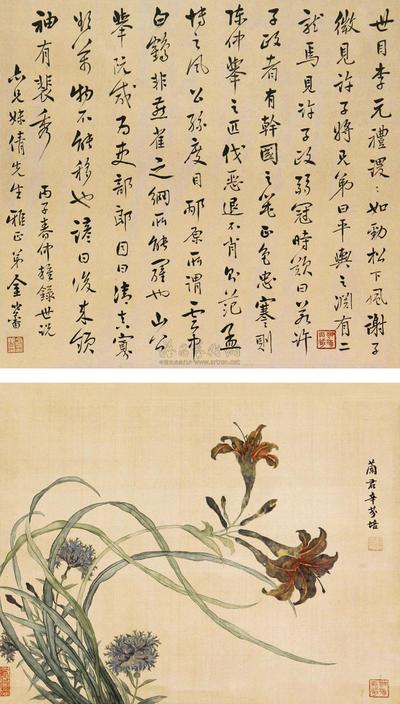 世目李元禮謖〻如勁松下風謝子
微見許子將兄弟曰平輿之淵有二
龍焉見許子政弱冠時歎曰若許
子政者有幹國之器正色忠謇則
陳仲舉之匹伐惡退不肖公范孟
博之風公孫度目邴原所謂雲中
白鶴非燕雀之網所能羅也山公
舉阮咸為吏部郎目曰清真寡
欲萬物不能移也諺曰後來領
袖有裴秀 丙子春仲錄世說
兄妹倩先生雅正 弟金
蘭君
www.artron.net